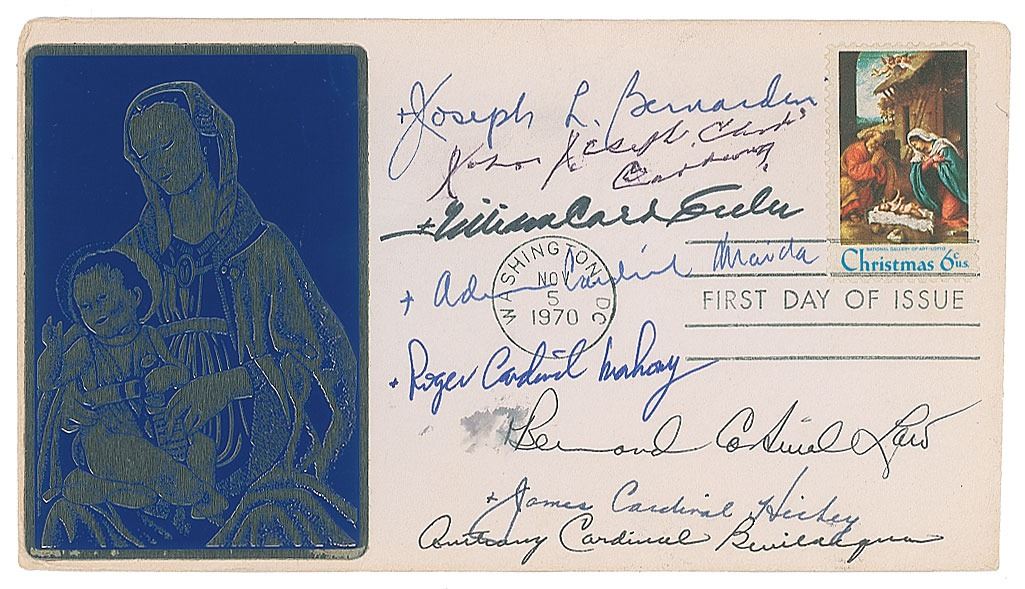 + Joseph L. Bernardin
John Joseph Card.
+ William Card Keeler
+ Adam Cardinal Maida
+ Roger Cardinal Mahony
Bernard Cardinal Law
+ James Cardinal Hickey
Anthony Cardinal Bevilacqua
WASHINGTON DC
NOV
5
1970
NATIONAL GALLERY OF ART
Christmas 6c U.S.
FIRST DAY OF ISSUE